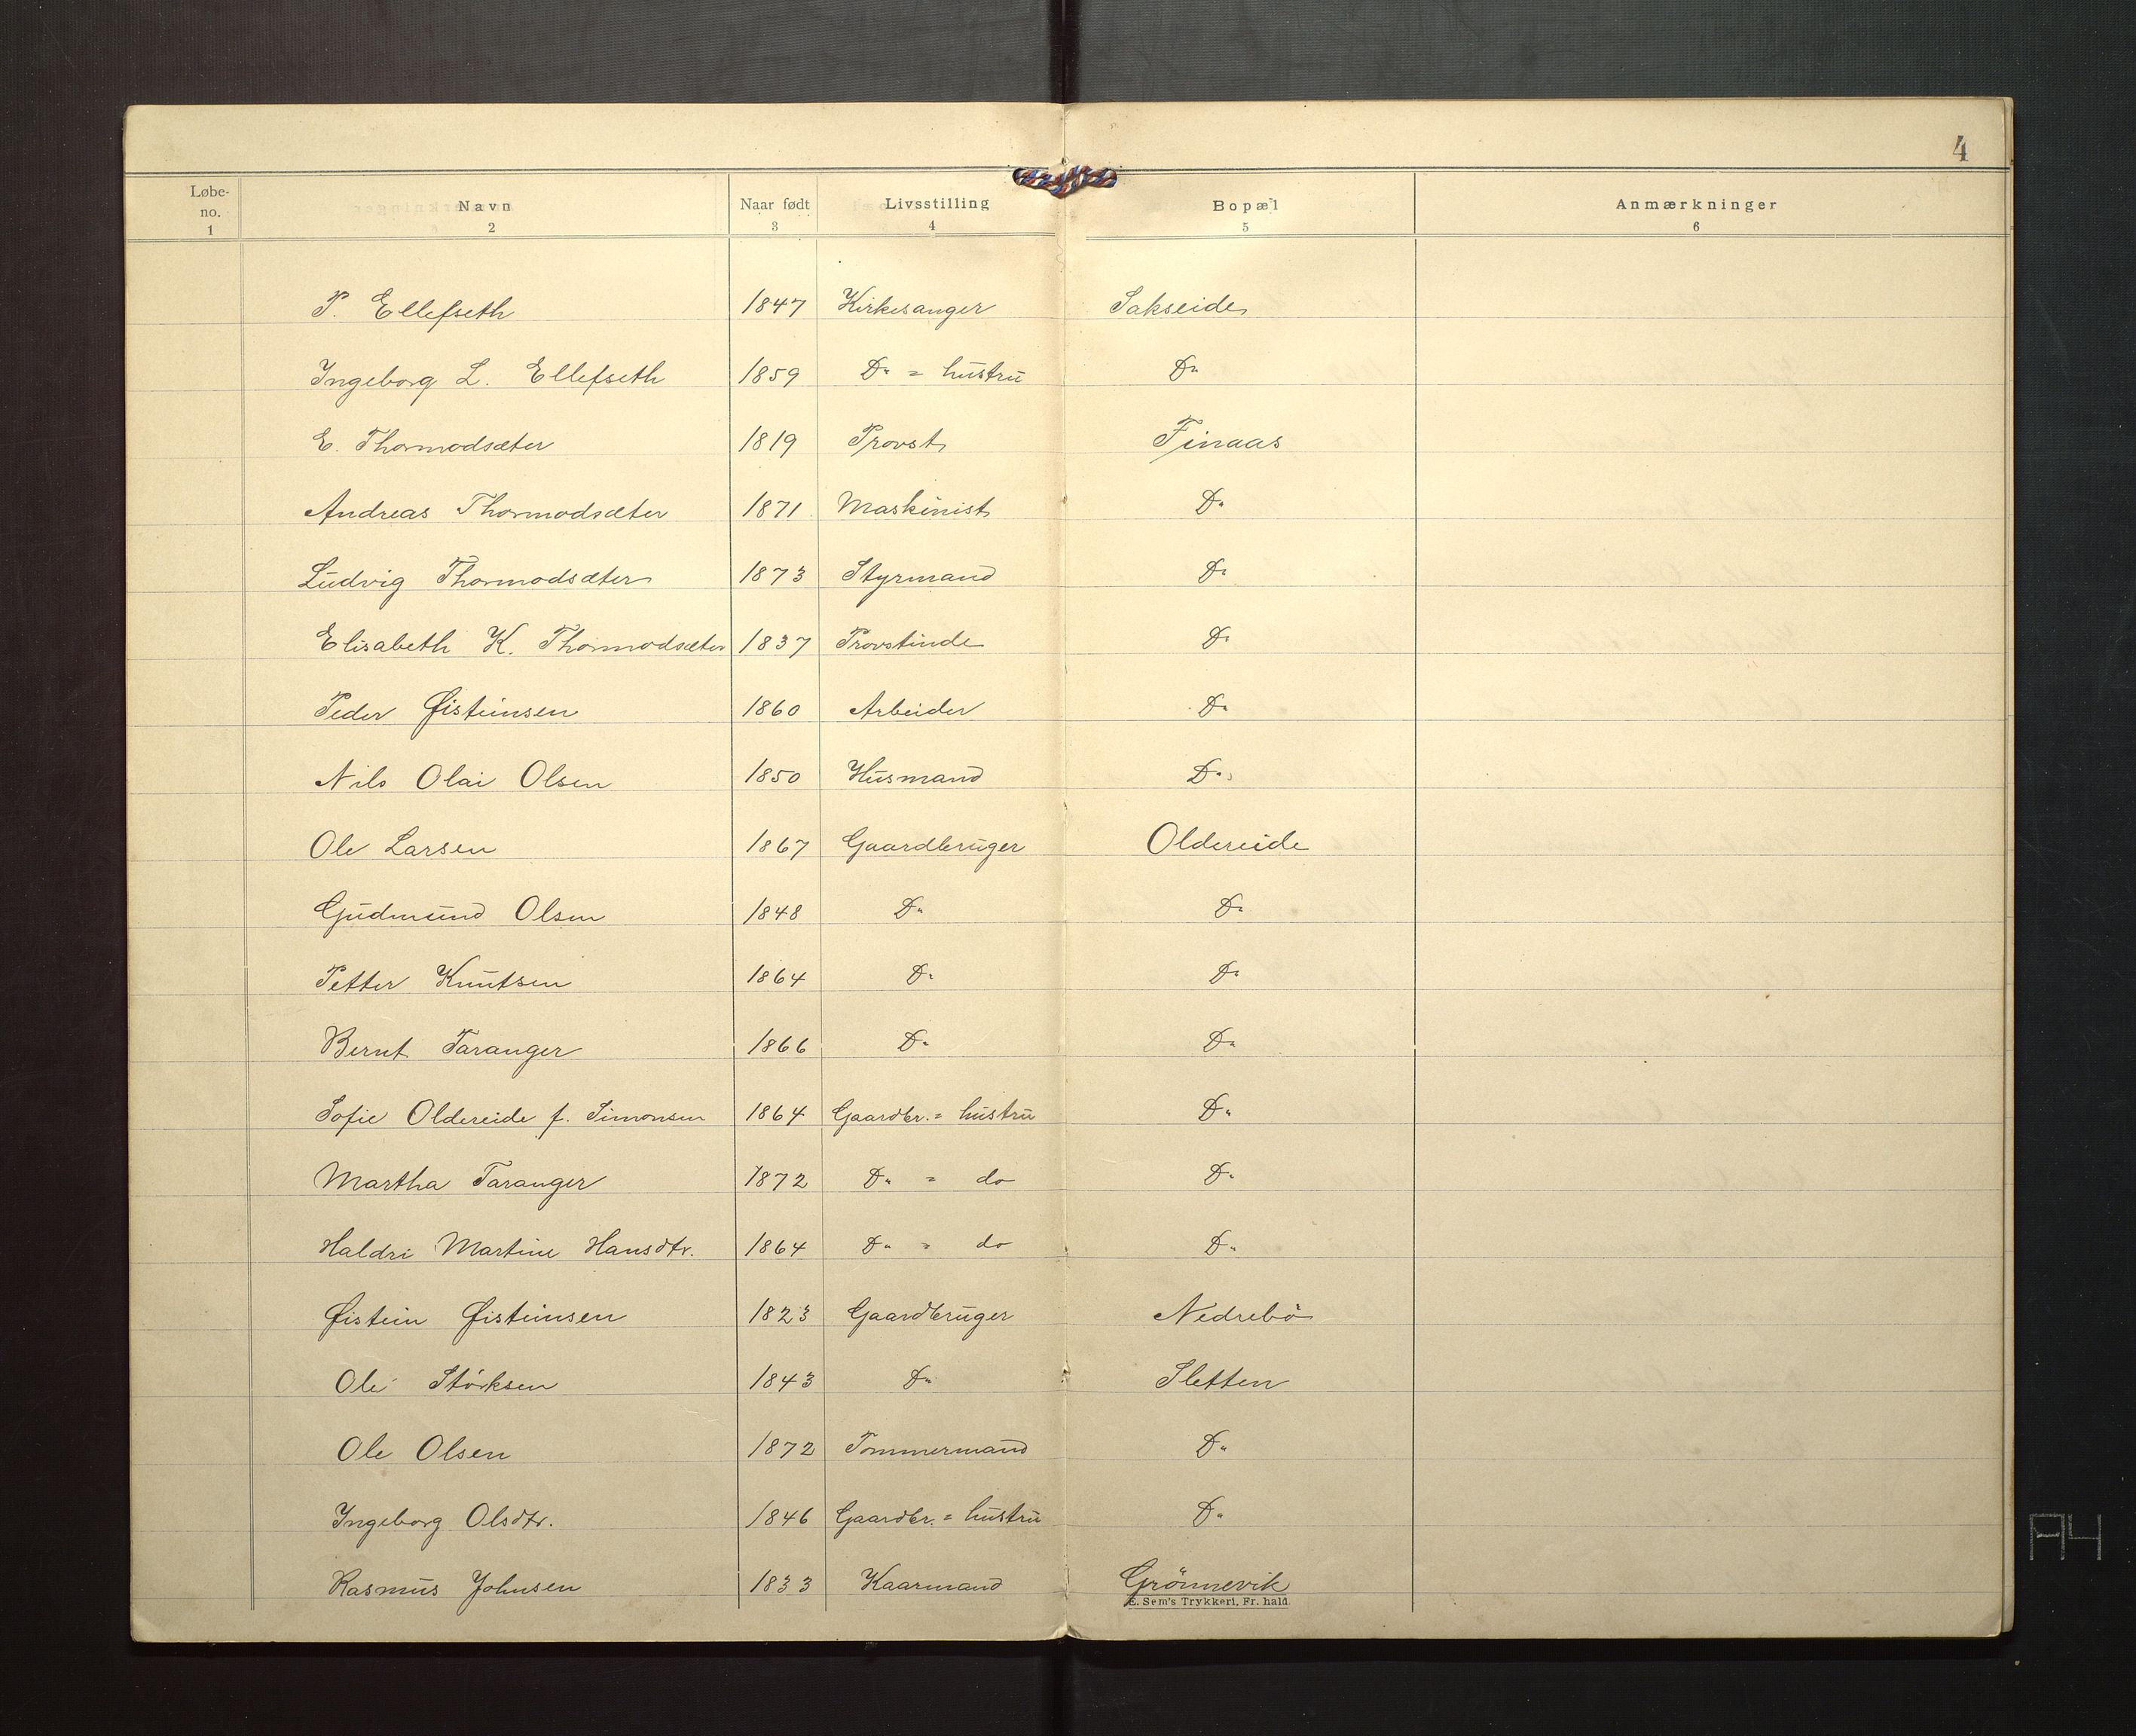 4
Løbe-no. Navn Naar født Livsstilling Bopæl Anmærkninger
1 2 3 4 5 6
P. Ellefseth 1847 Kirkesanger Sakseide
Ingeborg L. Ellefseth 1859 Do = hustru Do
E. Thormodsæter 1819 Provst Finaas
Andreas Thormodsæter 1871 Maskinist Do
Ludvig Thormodsæter 1873 Styrmand Do
Elisabeth K. Thormodsæter 1837 Provstinde Do
Peder Øisteinsen 1860 Arbeider Do
Nils Olai Olsen 1850 Husmand Do
Ole Larsen 1867 Gaardbruger Oldereide
Gudmund Olsen 1848 Do Do
Petter Knutsen 1864 Do Do
Bernt Taranger 1866 Do Do
Sofie Oldereide f. Simonsen 1864 Gaardbr. = hustru Do
Martha Taranger 1872 Do = do Do
Haldri Martine Hansdtr. 1864 Do = do Do
Øistein Øisteinsen 1823 Gaardbruger Nedrebö
Ole Störksen 1843 Do Sletten
Ole Olsen 1872 Tommermand Do
Ingeborg Olsdtr. 1846 Gaardbr. = hustru Do
Rasmus Johnsen 1833 Kaarmand Grönnevik
E. Sem's Trykkeri, Fr. hald
A4